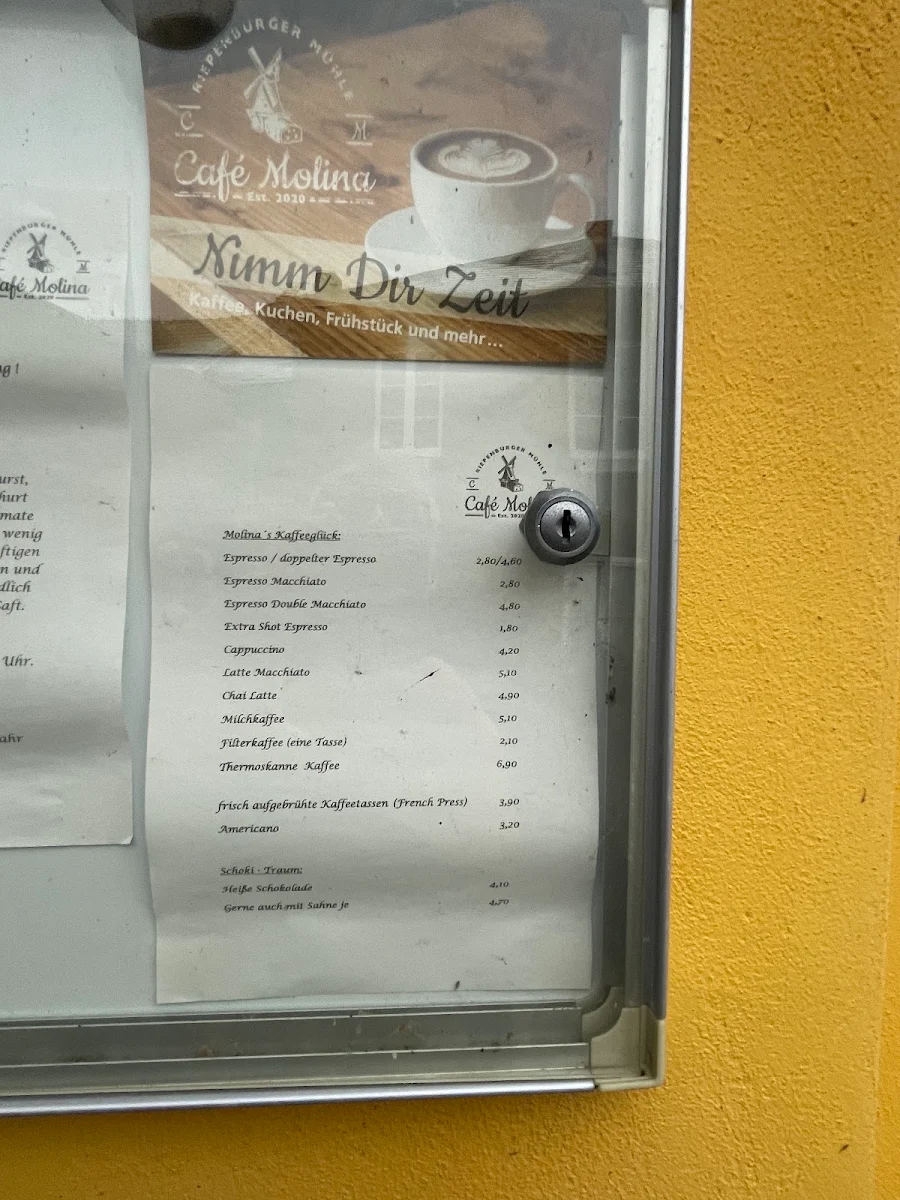 RIEPENBURGER MÜHLE
C M
Café Molina
Est. 2020
Nimm Dir Zeit
Kaffee, Kuchen, Frühstück und mehr...
RIEPENBURGER MÜHLE
M
afé Molina
Est. 2020
ng !
urst,
hurt
mate
wenig
ftigen
n und
dlich
aft.
Uhr.
ahr
RIEPENBURGER MÜHLE
C M
Café Mol
Est. 202
Molina´s Kaffeeglück:
Espresso / doppelter Espresso 2,80/4,60
Espresso Macchiato 2,80
Espresso Double Macchiato 4,80
Extra Shot Espresso 1,80
Cappuccino 4,20
Latte Macchiato 5,10
Chai Latte 4,90
Milchkaffee 5,10
Filterkaffee (eine Tasse) 2,10
Thermoskanne Kaffee 6,90
frisch aufgebrühte Kaffeetassen (French Press) 3,90
Americano 3,20
Schoki - Traum:
Heiße Schokolade 4,10
Gerne auch mit Sahne je 4,70